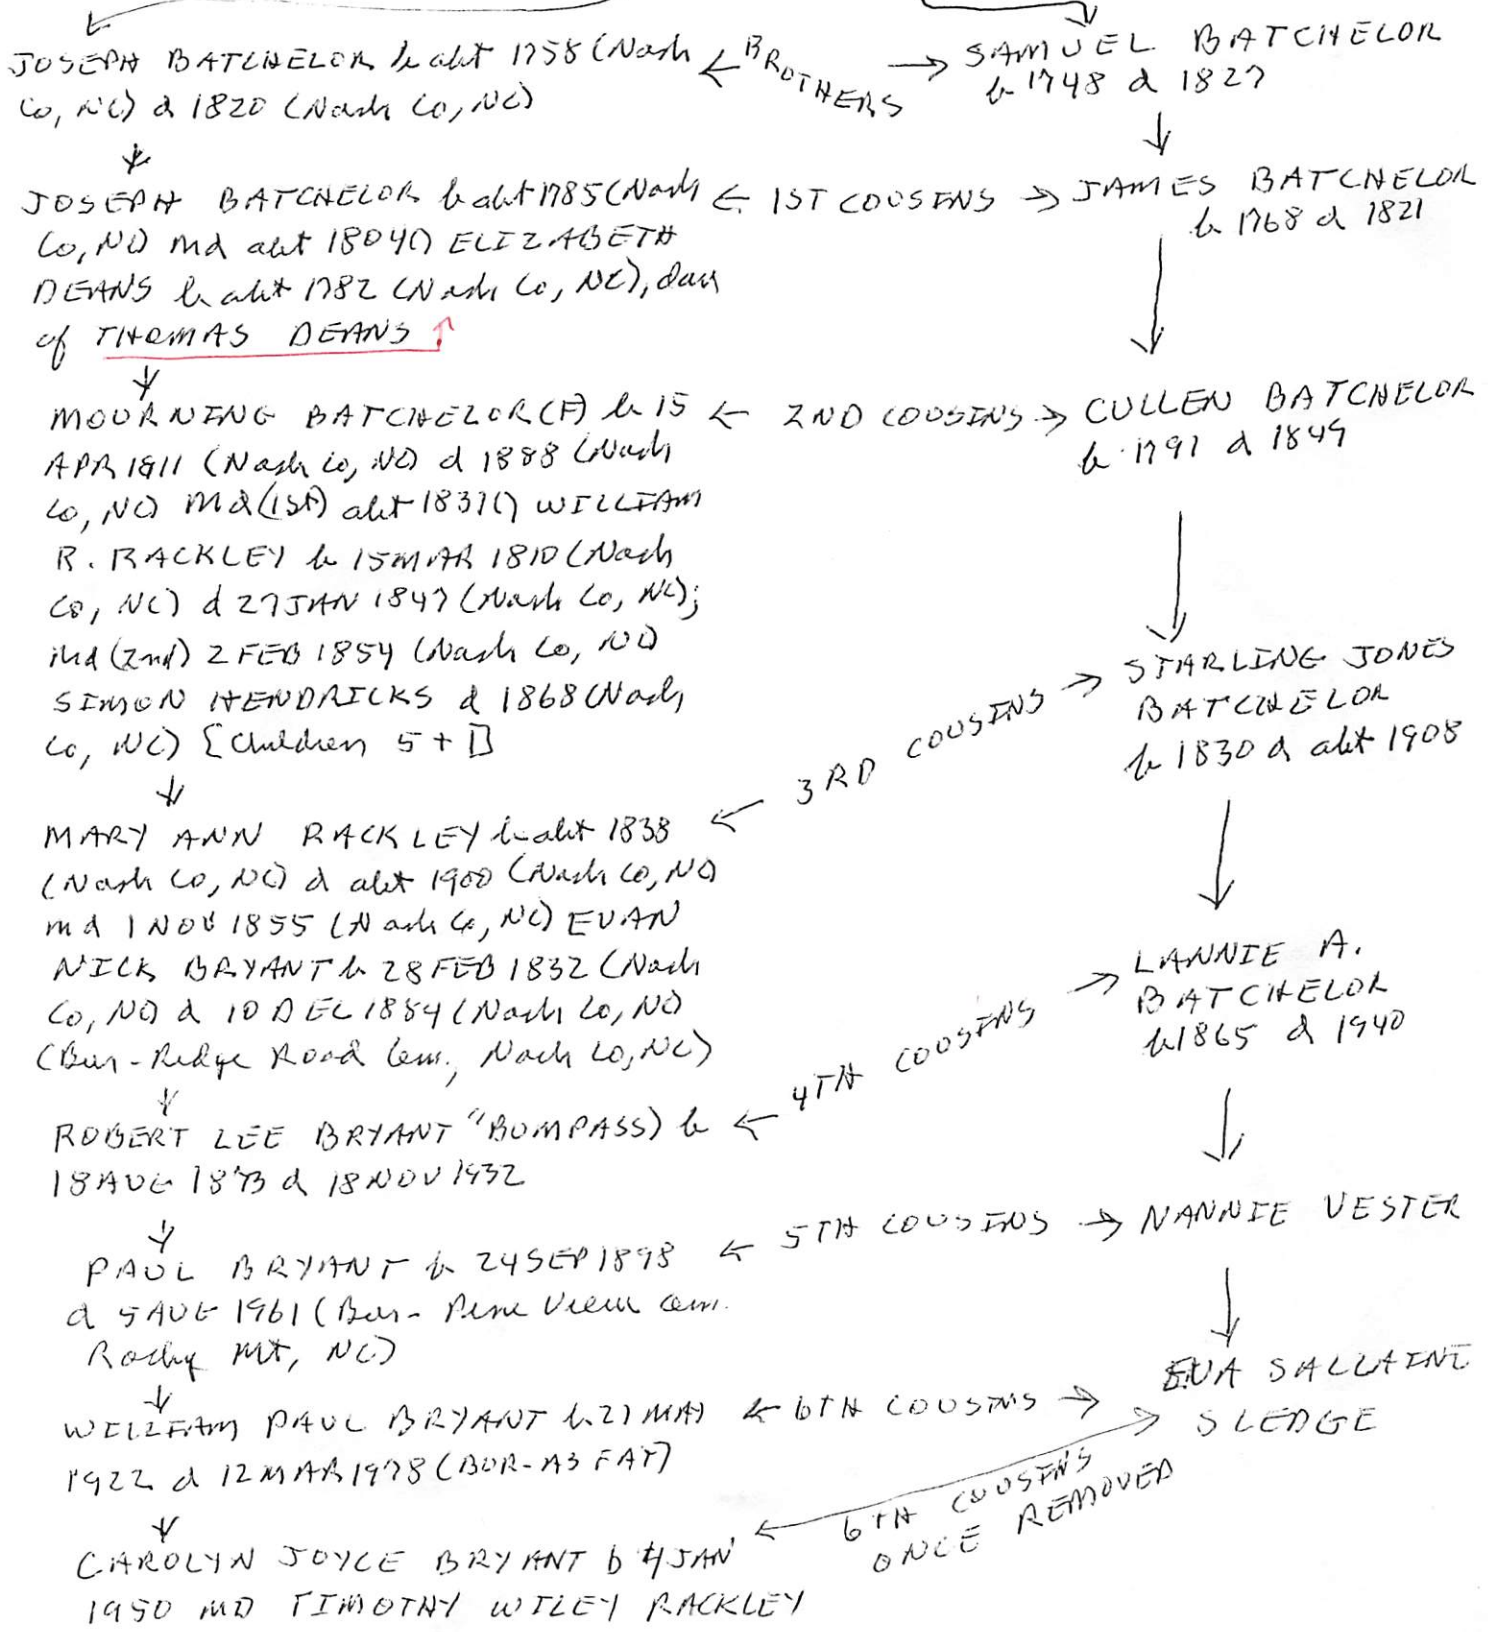 JOSEPH BATCHELOR b abt 1758 (Nash
Co, NC) d 1820 (Nash Co, NC)
← BROTHERS →
SAMUEL BATCHELOR
b 1748 d 1827
JOSEPH BATCHELOR b abt 1785 (Nash
Co, NC) md abt 1804() ELIZABETH
DEANS b abt 1782 (Nash Co, NC), dau
of THOMAS DEANS ↑
← 1ST COUSINS →
JAMES BATCHELOR
b 1768 d 1821
MOURNING BATCHELOR (F) b 15
APR 1811 (Nash Co, NC) d 1888 (Nash
Co, NC) md (1st) abt 1837() WILLIAM
R. RACKLEY b 15 MAR 1810 (Nash
Co, NC) d 27 JAN 1847 (Nash Co, NC);
md (2nd) 2 FEB 1854 (Nash Co, NC)
SIMON HENDRICKS d 1868 (Nash
Co, NC) [Children 5 + []
← 2ND COUSINS →
CULLEN BATCHELOR
b 1791 d 1849
← 3RD COUSINS →
STARLING JONES
BATCHELOR
b 1830 d abt 1908
MARY ANN RACKLEY b abt 1838
(Nash Co, NC) d abt 1900 (Nash Co, NC)
md 1 NOV 1855 (Nash Co, NC) EVAN
NICK BRYANT b 28 FEB 1832 (Nash
Co, NC) d 10 DEC 1884 (Nash Co, NC)
(Bur-Redge Road Cem., Nash Co, NC)
← 4TH COUSINS →
LANNIE A.
BATCHELOR
b 1865 d 1940
ROBERT LEE BRYANT "BUMPASS) b
18 AUG 1873 d 18 NOV 1932
← 5TH COUSINS →
NANNIE VESTER
PAUL BRYANT b 24 SEP 1898
d 5 AUG 1961 (Bur- Pine View Cem.
Rocky Mt, NC)
← 6TH COUSINS →
EVA SALLAINE
SLEDGE
WILLIAM PAUL BRYANT b. 27 MAY
1922 d 12 MAR 1978 (BUR-
6TH COUSINS
ONCE REMOVED
CAROLYN JOYCE BRYANT b 4 JAN
1950 MD TIMOTHY WILEY RACKLEY